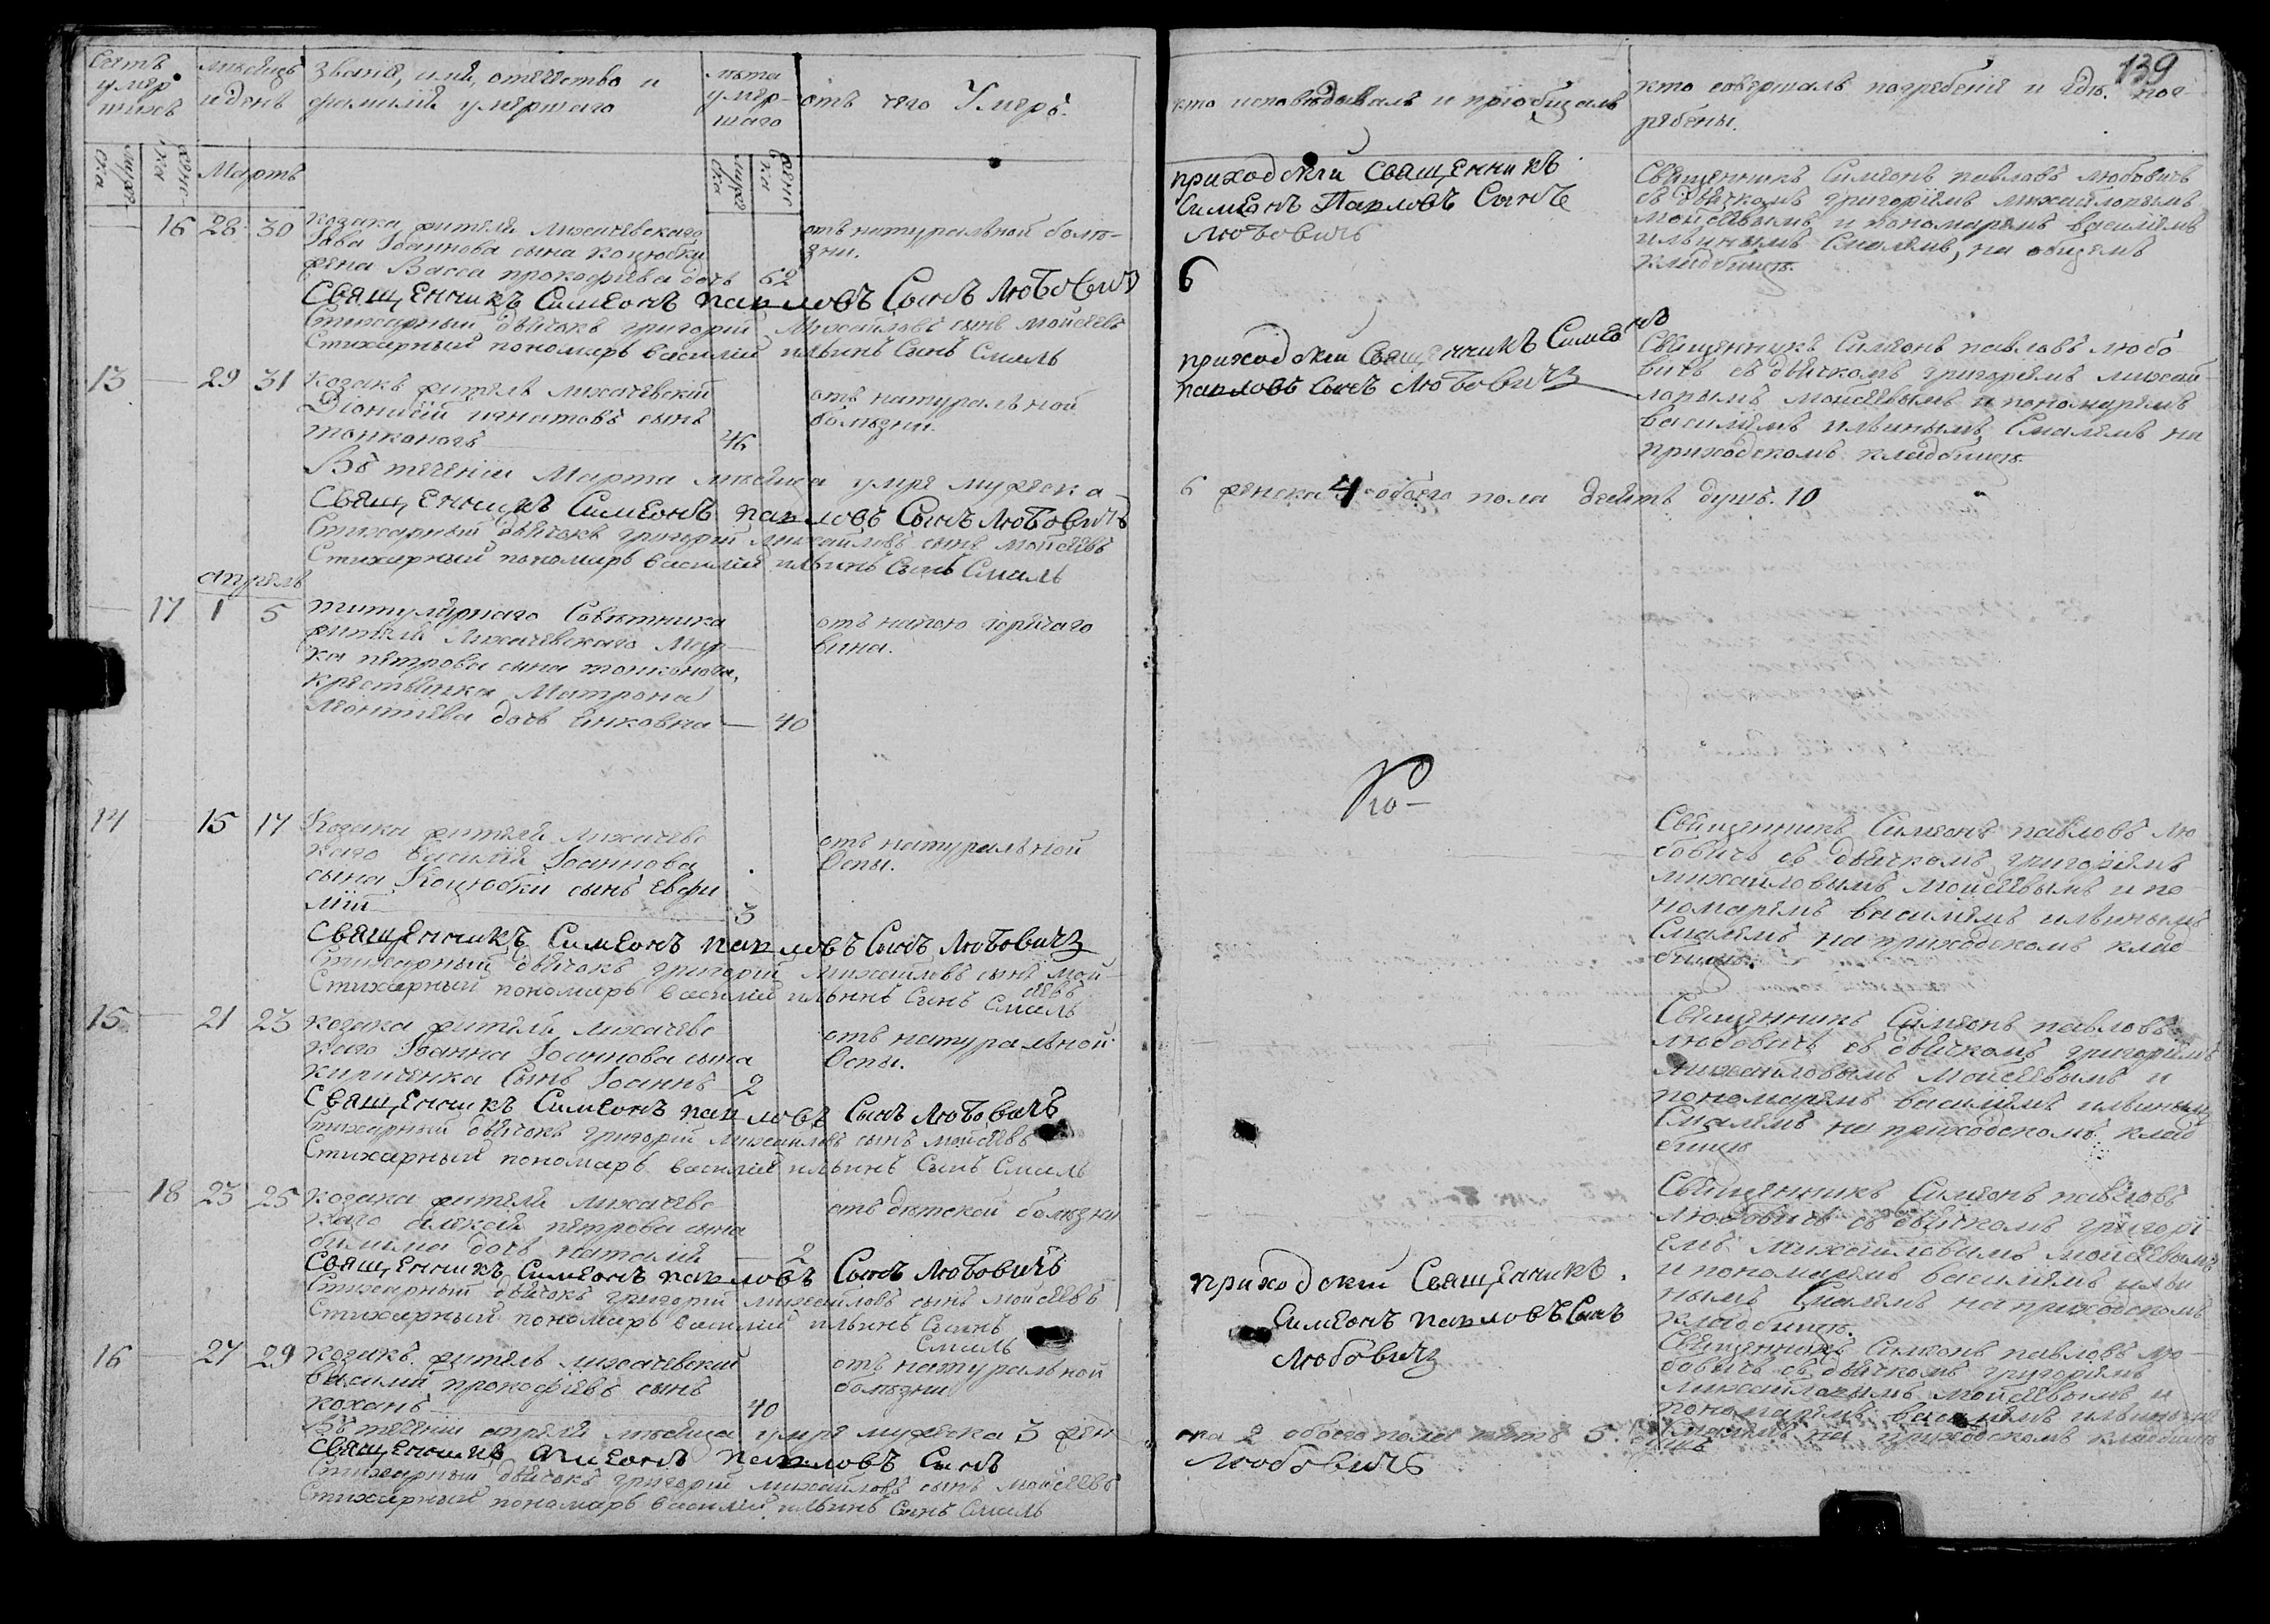 139
Счетъ умер шихъ
мѣсяцъ и день
Званіе, имя, отечество и
фамилія умершаго
лѣта умер- шаго
отъ чего Умеръ.
кто исповѣдывалъ и пріобщалъ
кто совершалъ погребеніе и гдѣ. пог-
ребены.
муже ска
женс ка
Мартъ
муже ска
женс ка
16 28 30
козака жителя лихачевскаго
Іова Іоаннова сына коцюбки
жена Васса прокофіева дочь 62
отъ натуральной болѣ-
зни.
приходскій Священникъ
Симеонъ Павловъ Сынъ
Любовичъ
6
Священникъ Симеонъ павловъ любовичъ
съ дьячкомъ григоріемъ михайловымъ
мойсѣевымъ и пономаремъ василіемъ
ильинымъ Смалемъ, на общемъ
кладбищѣ.
Священникъ Симеонъ павловъ Сынъ Любовичъ
Стихарный дьячокъ григорій Михайловъ сынъ мойсѣевъ
Стихарный пономарь василій ильинъ Сынъ Смаль
13 29 31
козакъ житель лихачевскій
Діонисій игнатовъ сынъ
тонконогъ 46
отъ натуральной
болѣзни.
приходскій Священникъ Симеонъ
павловъ сынъ Любовичъ
Священникъ Симеонъ павловъ любо
вичъ съ дьячкомъ григоріемъ михай
ловымъ мойсѣевымъ и пономаремъ
василіемъ ильинымъ Смалемъ на
приходскомъ кладбищѣ.
Въ теченіи Марта мѣсяца умре мужеска 6 женска 4 обоего пола десять душъ. 10
Священникъ Симеонъ павловъ Сынъ Любовичъ
Стихарный дьячокъ григорій михайловъ сынъ мойсѣевъ
Стихарный пономарь василій ильинъ Сынъ Смаль
апрель
17 1 5
титулярнаго Совѣтника
жителя Лихачевскаго Мар-
ка петрова сына тонконога,
крестьянка Матрона
Леонтіева дочь 40
отъ напою горячаго
вина.
14 15 17
Козака жителя лихачевс
каго Василія Іоаннова
сына Коцюбки сынъ Евфи
мій 3
отъ натуральной
Оспы.
Священникъ Симеонъ павловъ лю
бовичъ съ дьячкомъ григоріемъ
михайловымъ мойсѣевымъ и по
номаремъ василіемъ ильинымъ
Смалемъ на приходскомъ клад
бищѣ.
Священникъ Симеонъ павловъ Сынъ Любовичъ
Стихарный дьячокъ григорій михайловъ сынъ мой-
сѣевъ
Стихарный пономарь василій ильинъ Сынъ Смаль
15 21 23
козака жителя лихачевс
каго Іоанна Іоаннова сына
кириченка Сынъ Іоаннъ 2
отъ натуральной
Оспы.
Священникъ Симеонъ павловъ
любовичъ съ дьячкомъ григоріемъ
михайловымъ мойсѣевымъ и
пономаремъ василіемъ ильинымъ
Смалемъ на приходскомъ клад
бищѣ
Священникъ Симеонъ павловъ Сынъ Любовичъ
Стихарный дьячокъ григорій михайловъ сынъ мойсѣевъ
Стихарный пономарь василій ильинъ Сынъ Смаль
18 23 25
козака жителя лихачевс
каго алексѣя петрова сына
дочь наталія 2
отъ дѣтской болѣзни
Священникъ Симеонъ павловъ
любовичъ съ дьячкомъ григорі
емъ михайловымъ мойсѣевымъ
и пономаремъ василіемъ ильи
нымъ Смалемъ на приходскомъ
кладбищѣ.
Священникъ Симеонъ павловъ Сынъ Любовичъ
Стихарный дьячокъ григорій михайловъ сынъ мойсѣевъ
Стихарный пономарь василій ильинъ Сынъ
Смаль
16 27 29
козакъ житель лихачевскій
василій прокофіевъ сынъ
коханъ 40
отъ натуральной
болѣзни
приходскій Священникъ
Симеонъ павловъ Сынъ
Любовичъ
Священникъ Симеонъ павловъ лю-
бовичъ съ дьячкомъ григоріемъ
михайловымъ мойсѣевымъ и
пономаремъ василіемъ ильинымъ
Смалемъ на приходскомъ кладбищѣ
Въ теченіи апреля мѣсяца умре мужеска 3 жен
ска 2 обоего пола пять 5. душъ
Священникъ Симеонъ павловъ Сынъ Любовичъ
Стихарный дьячокъ григорій михайловъ сынъ мойсѣевъ
Стихарный пономарь василій ильинъ Сынъ Смаль